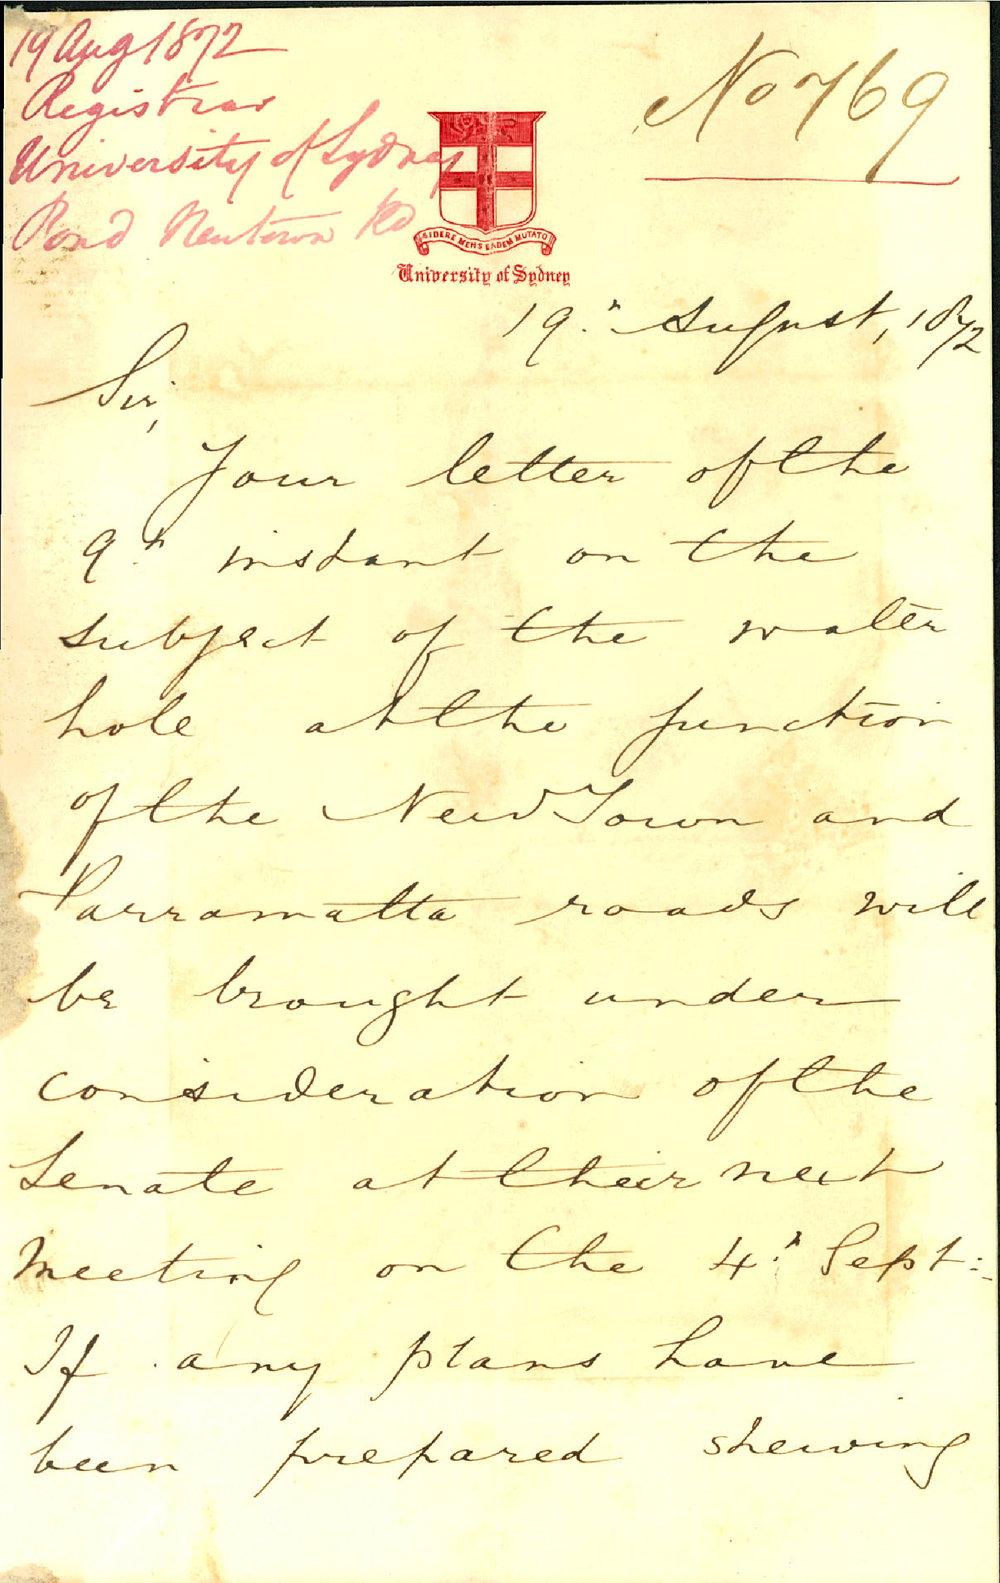 19 Aug 1872
Registrar
University of Sydney
Pond Newtown Rd
No 769
SIDERE MENS EADEM MUTATO
University of Sydney
19th August, 1872
Sir,
Your letter of the
9th instant on the
subject of the water
hole at the junction
of the NewTown and
Parramatta roads will
be brought under
consideration of the
Senate at their next
Meeting on the 4th Sept:
If any plans have
been prepared shewing